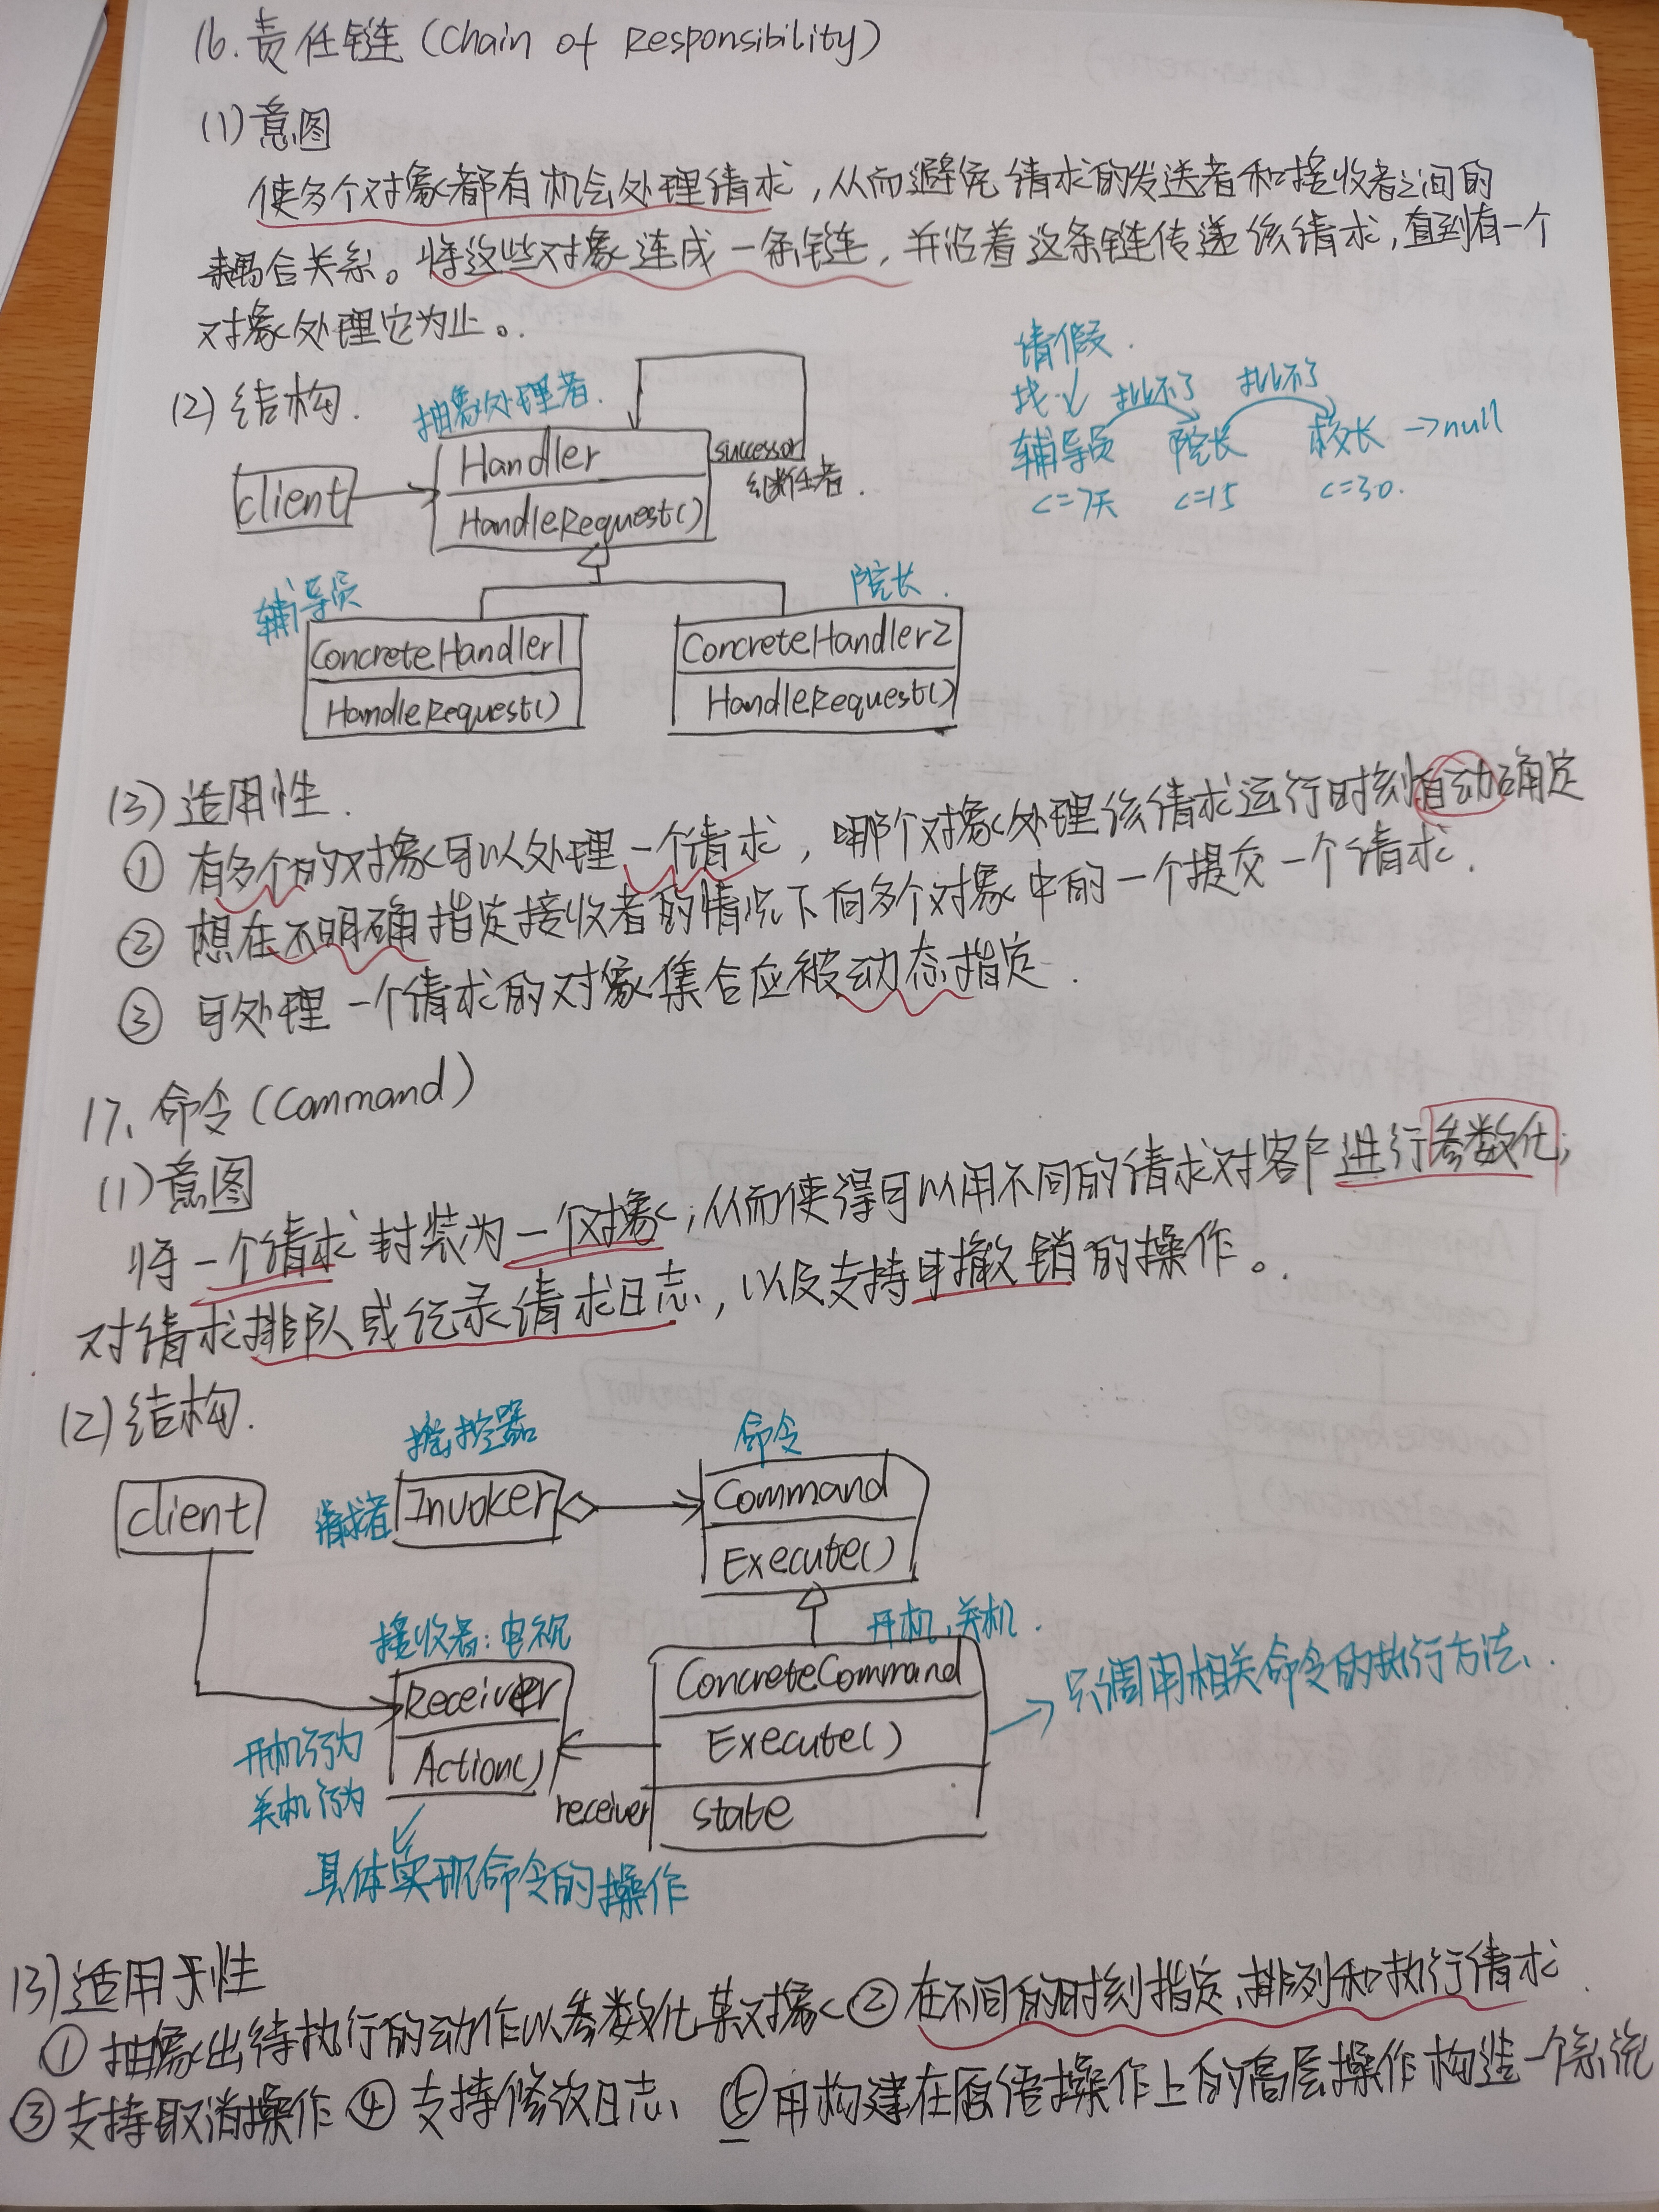 16.责任链(Chain of Responsibility)
(1)意图
使多个对象都有机会处理请求,从而避免请求的发送者和接收者之间的
耦合关系。将这些对象连成一条链,并沿着这条链传递该请求,直到有一个
对象处理它为止。
(2)结构.
抽象处理者.
client
Handler
HandleRequest()
successor
继任者.
请假.
找
批不了
批不了
辅导员
院长
校长
→null
<=7天
<=15
<=30.
辅导员
院长.
ConcreteHandler1
HandleRequest()
ConcreteHandler2
HandleRequest()
(3)适用性.
① 有多个的对象可以处理一个请求,哪个对象处理该请求运行时刻自动确定
② 想在不明确指定接收者的情况下向多个对象中的一个提交一个请求.
③ 可处理一个请求的对象集合应被动态指定.
17.命令(Command)
(1)意图
将一个请求封装为一个对象;从而使得可以用不同的请求对客户进行参数化;
对请求排队或纪录请求日志,以及支持可撤销的操作。
(2)结构.
遥控器
命令
client
请求者
Invoker
Command
Execute()
接收者:电视
开机,关机.
Receiver
Action()
ConcreteCommand
Execute()
state
receiver
开机行为
关机行为
→只调用相关命令的执行方法.
具体实现命令的操作
(3)适用于性
① 抽象出待执行的动作以参数化某对象 ② 在不同的时刻指定、排列和执行请求.
③ 支持取消操作 ④ 支持修改日志 ⑤ 用构建在原语操作上的高层操作构造一个系统